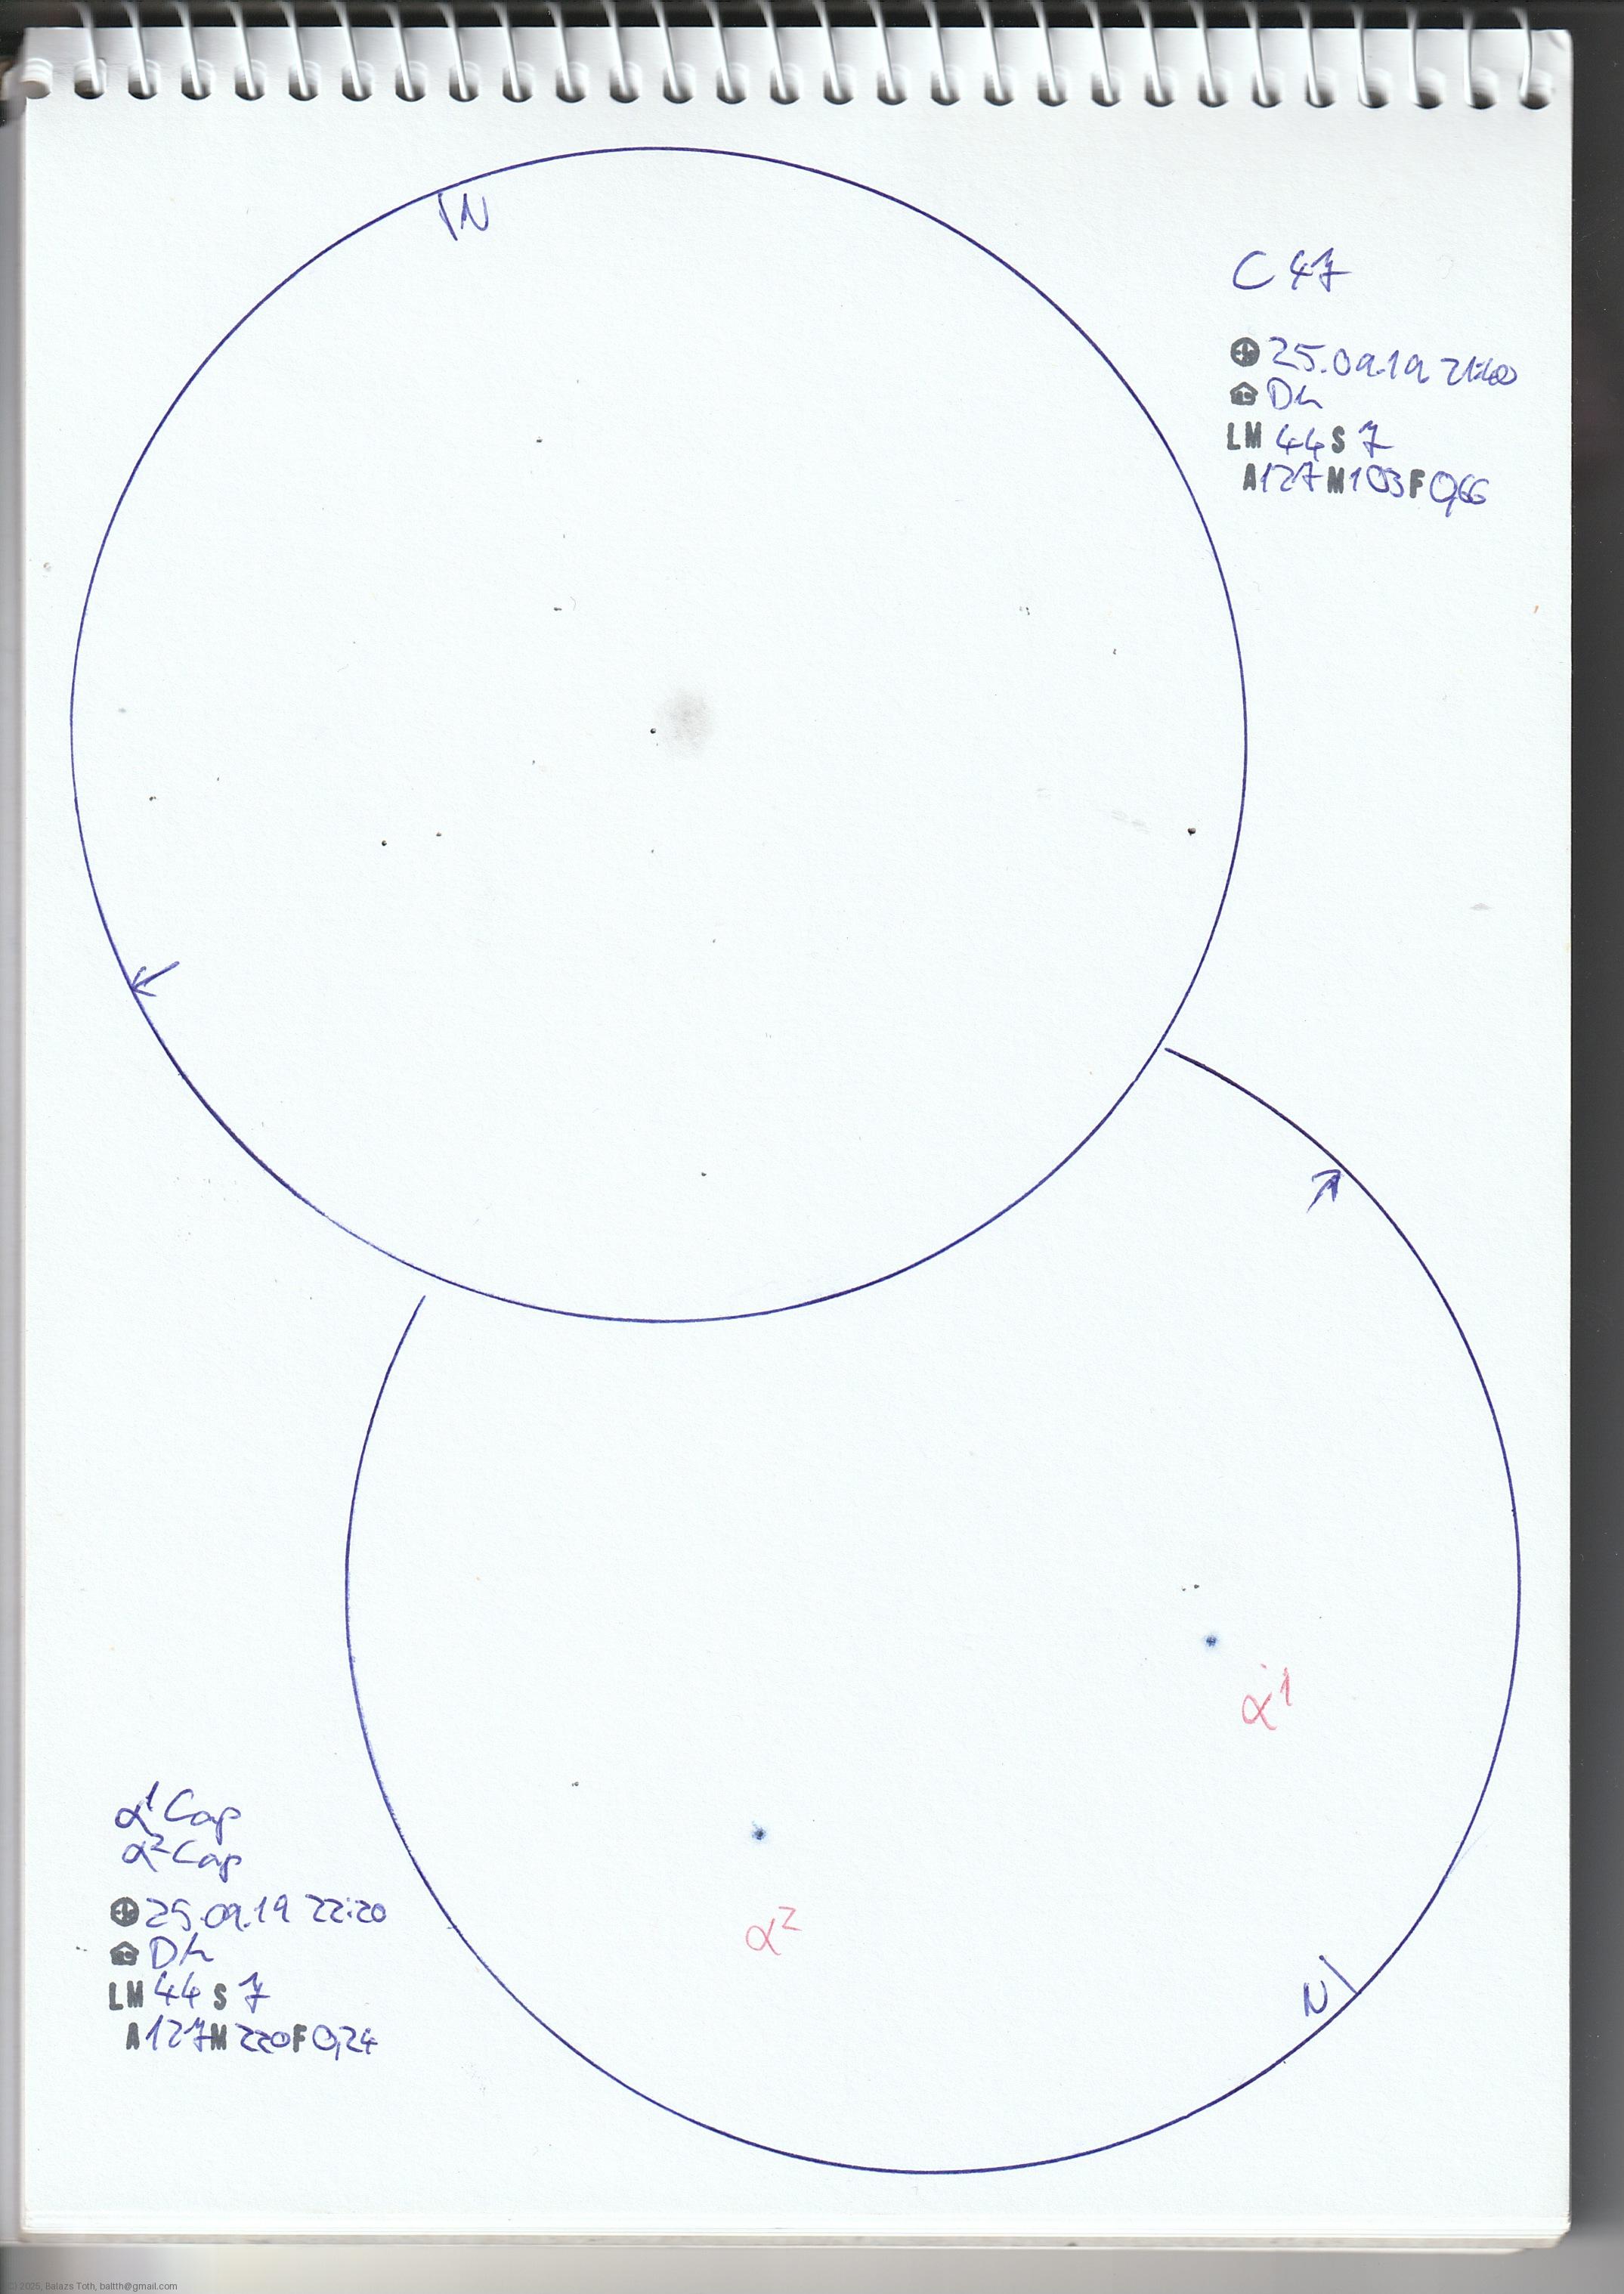 N
C 47
25.09.19 21:40
Dh
LM 44 S 7
A127 M103 F0,66
α1
α1 Cap
α2 Cap
25.09.19 22:20
α2
Dh
LM 44 S 7
N
A127 M 220 F 0,24
© 2025, Balazs Toth, baltth@gmail.com